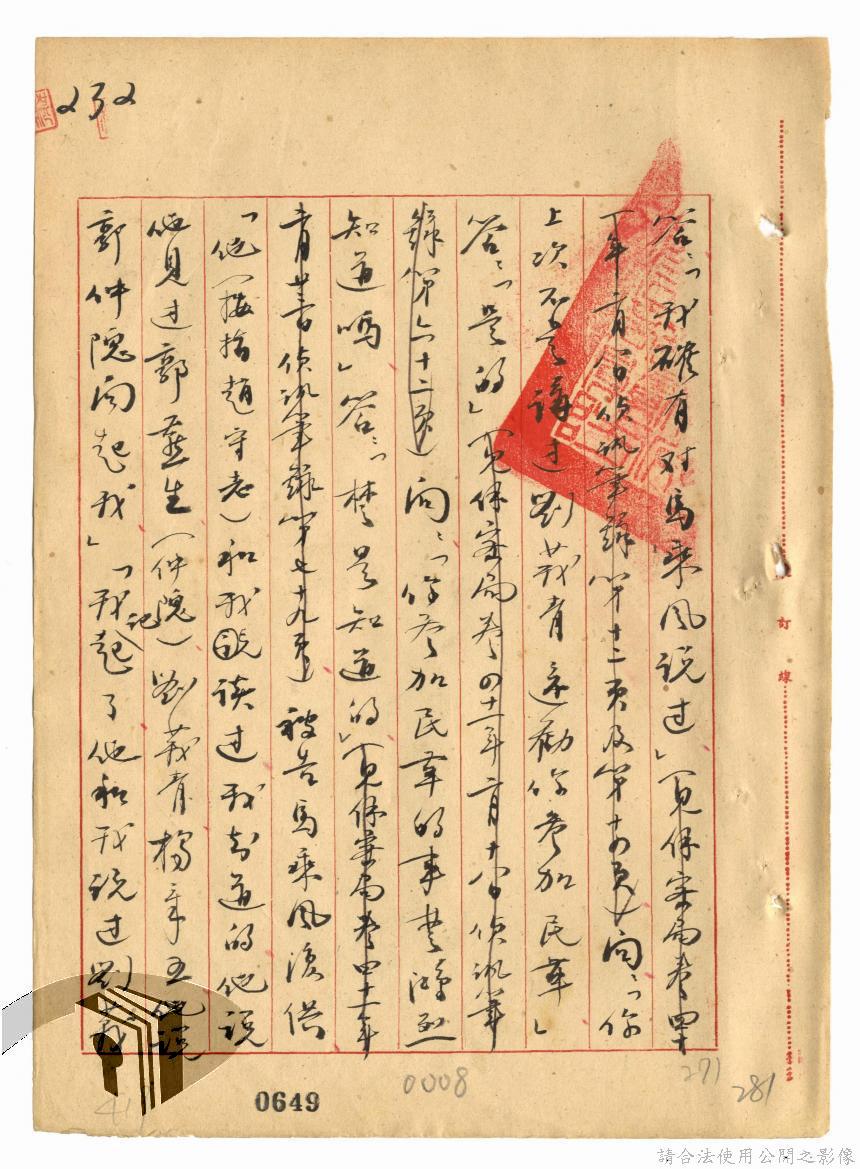 232
答：「我確有對馬乘風說過」（見保安局卷四十
一年二月 日偵訊筆錄第十二頁及第十四頁）問：「你
上次不是講过劉莪青還勸你參加民革」
答：「是的」（見保密局卷四十一年二月十 日偵訊筆
錄第六十二頁）問：「你參加民革的事楚鴻烈
知道嗎」答：「楚是知道的」（見保密局卷四十一年
月廿 日偵訊筆錄第七十九頁）被告馬乘風復供
「他（按指趙守志）和我談过我知道的他說
他見过郭燕生（仲隗）劉莪青楊 五他說
郭仲隗問起我」「我記起了他和我說过劉莪
訂線
0649
0008
271
281
41
請合法使用公開之影像